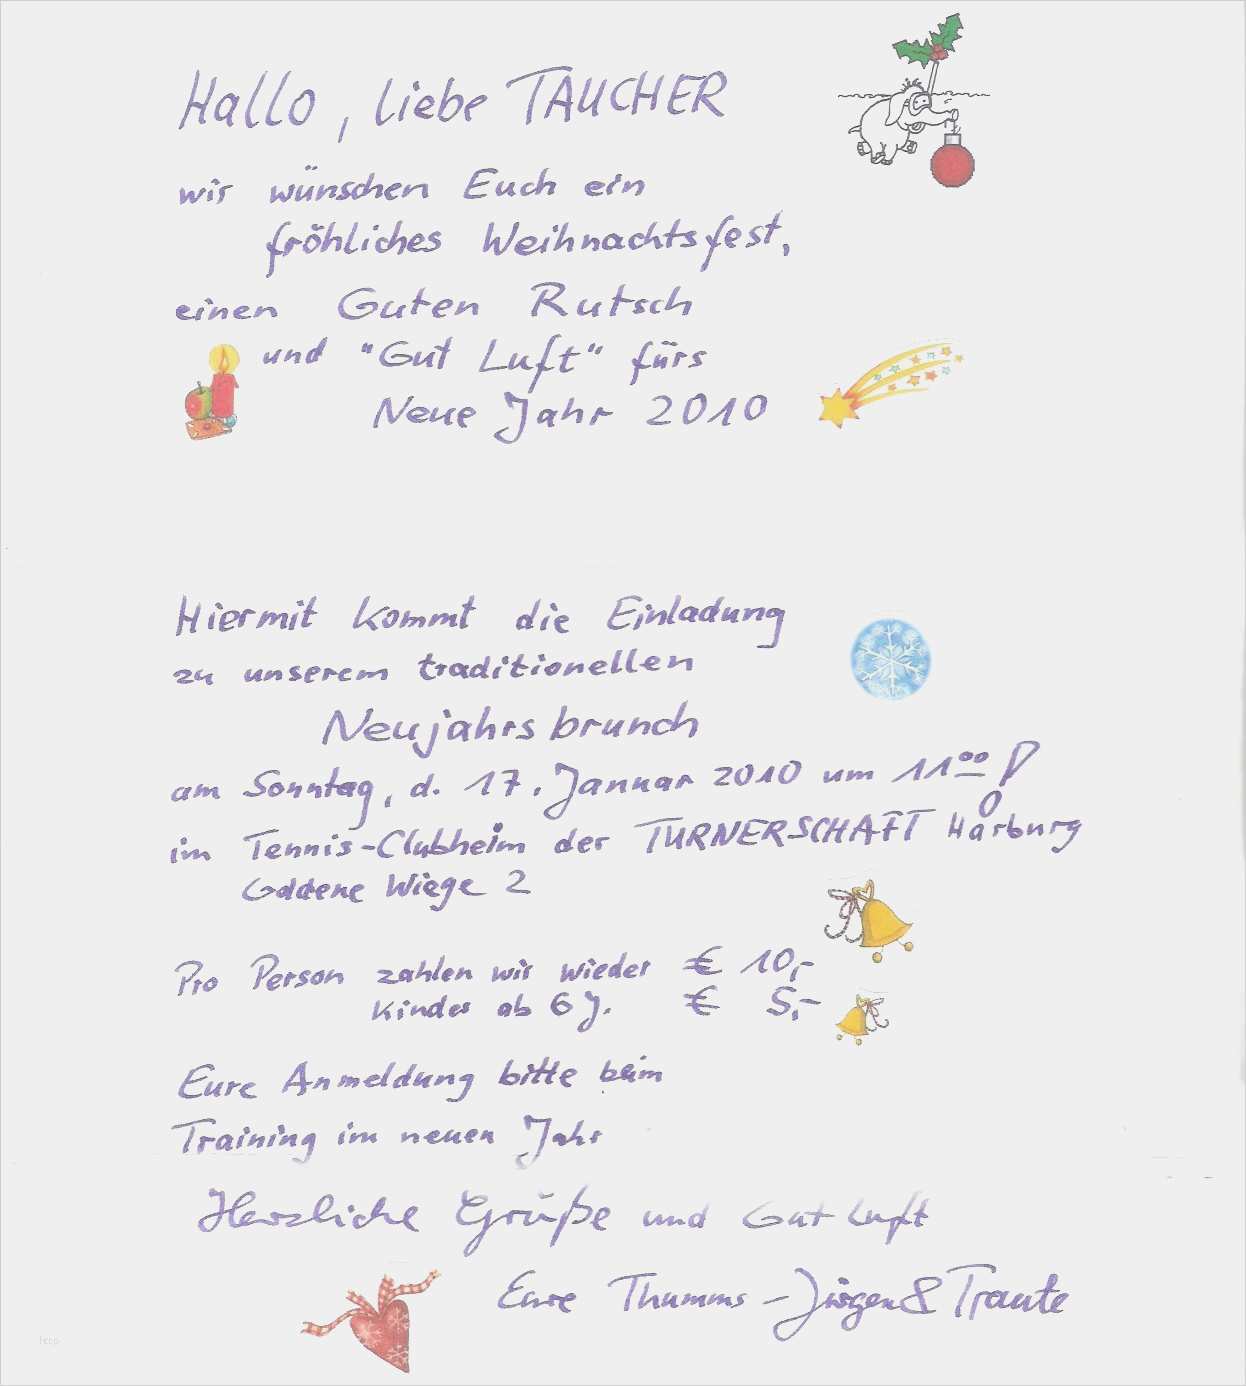 Hallo, liebe TAUCHER
wir wünschen Euch ein
fröhliches Weihnachtsfest,
einen Guten Rutsch
und "Gut Luft" fürs
Neue Jahr 2010
Hiermit kommt die Einladung
zu unserem traditionellen
Neujahrsbrunch
am Sonntag, d. 17. Januar 2010 um 11⁰⁰
im Tennis-Clubheim der TURNERSCHAFT Harburg
Goldene Wiege 2
Pro Person zahlen wir wieder € 10,-
Kinder ab 6 J. € 5,-
Eure Anmeldung bitte beim
Training im neuen Jahr
Herzliche Grüße und Gut Luft
Eure Thumms - Jürgen & Traute